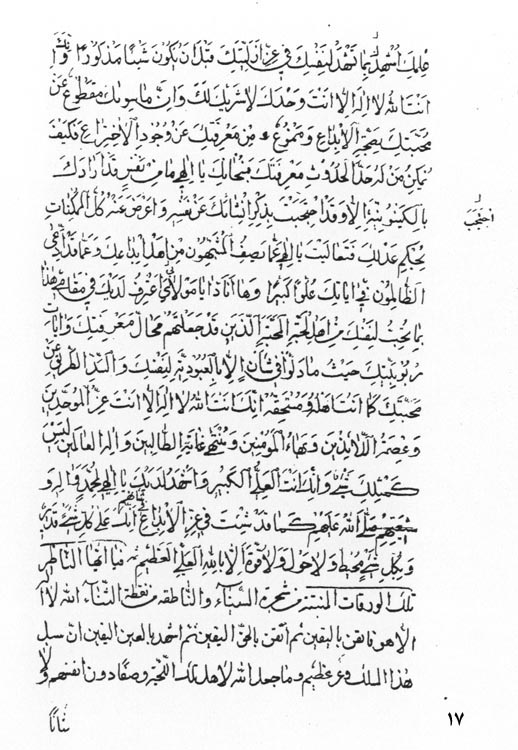 علمك اشهدك بما تشهد لنفسك في عز ازليتك قبل ان يكون شيئا مذكورا بانك
انت الله لا اله الا انت وحدك لا شريك لك وان ما سواك مقطوع عن
محبتك بصحة الابداع وممنوع من معرفتك عن وجود الاختراع فكيف
يمكن من له حد الحدوث معرفتك فسبحانك يا الهي ما من نفس قد ارادك
بالكينونية الا وقد احتجبت بذكر انشائك عن نفسه واعرض عنه كل الممكنات
احتجب
بحكم عدلك فتعاليت يا الهي عما يصف المشبهون من اهل ابداعك وعما قد ادعى
الظالمون في اياتك علوا كبيرا وها انا ذا يا مولاي اعترف لديك في مقامي هذا
بما يحب لنفسك من اهل المحبة الذين قد جعلتهم محال معرفتك وايات
ربوبيتك حيث ما دلوا في شان الا بالعبودية لنفسك و الطرق عن
محبتك كما انت اهله ومستحقه انك انت الله لا اله الا انت عز الموحدين
وعصمة اللائذين وبهاء المؤمنين ومنتهى غاية الطالبين واله العالمين ليس
كمثلك شيء وانك انت العلي الكبير واشهد لديك يا الهي لمحمد واله و
شيعتهم صلى الله عليهم كما قد شئت في عز الابداع انك على كل شيء قدير
وبكل شيء محيط ولا حول ولا قوة الا بالله العلي العظيم فيا ايها الناظر
تلك الورقات المنبتة من شجرة السيناء والناطقة من نقطة الثناء الله لا ا
الا هو فايقن باليقين ثم اتقن بالحق اليقين ثم اشهد بالعين اليقين ان سبل
هذا السلك وعر عظيم وما جعل الله لاهل تلك اللجة وصفا دون انفسهم ولا
شانا
١٧